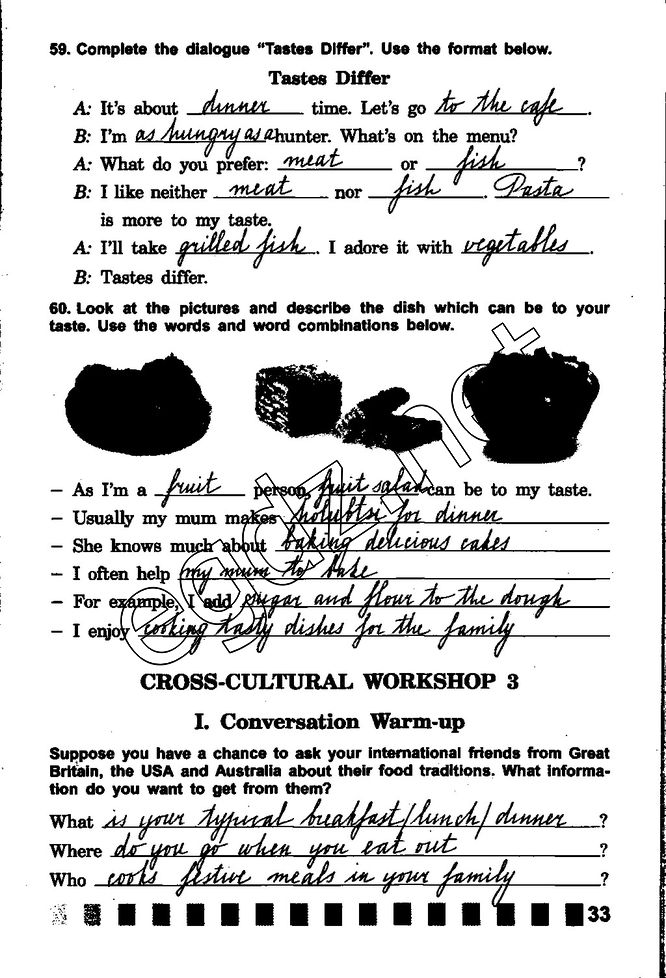 59. Complete the dialogue "Tastes Differ". Use the format below.
Tastes Differ
A: It's about dinner time. Let's go to the cafe.
B: I'm as hungry as a hunter. What's on the menu?
A: What do you prefer: meat or fish?
B: I like neither meat nor fish. Pasta
is more to my taste.
A: I'll take grilled fish. I adore it with vegetables.
B: Tastes differ.
60. Look at the pictures and describe the dish which can be to your
taste. Use the words and word combinations below.
– As I'm a fruit person, fruit salad can be to my taste.
– Usually my mum makes holubtsi for dinner
– She knows much about baking delicious cakes
– I often help my mum to bake
– For example, I add sugar and flour to the dough
– I enjoy cooking tasty dishes for the family
CROSS-CULTURAL WORKSHOP 3
I. Conversation Warm-up
Suppose you have a chance to ask your international friends from Great
Britain, the USA and Australia about their food traditions. What informa-
tion do you want to get from them?
What is your typical breakfast/lunch/dinner?
Where do you go when you eat out?
Who cooks festive meals in your family?
33